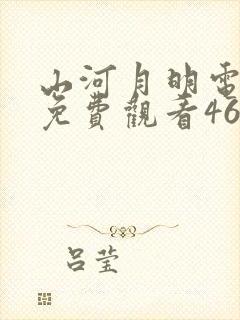 山河月明電
免費觀看46
吕莹